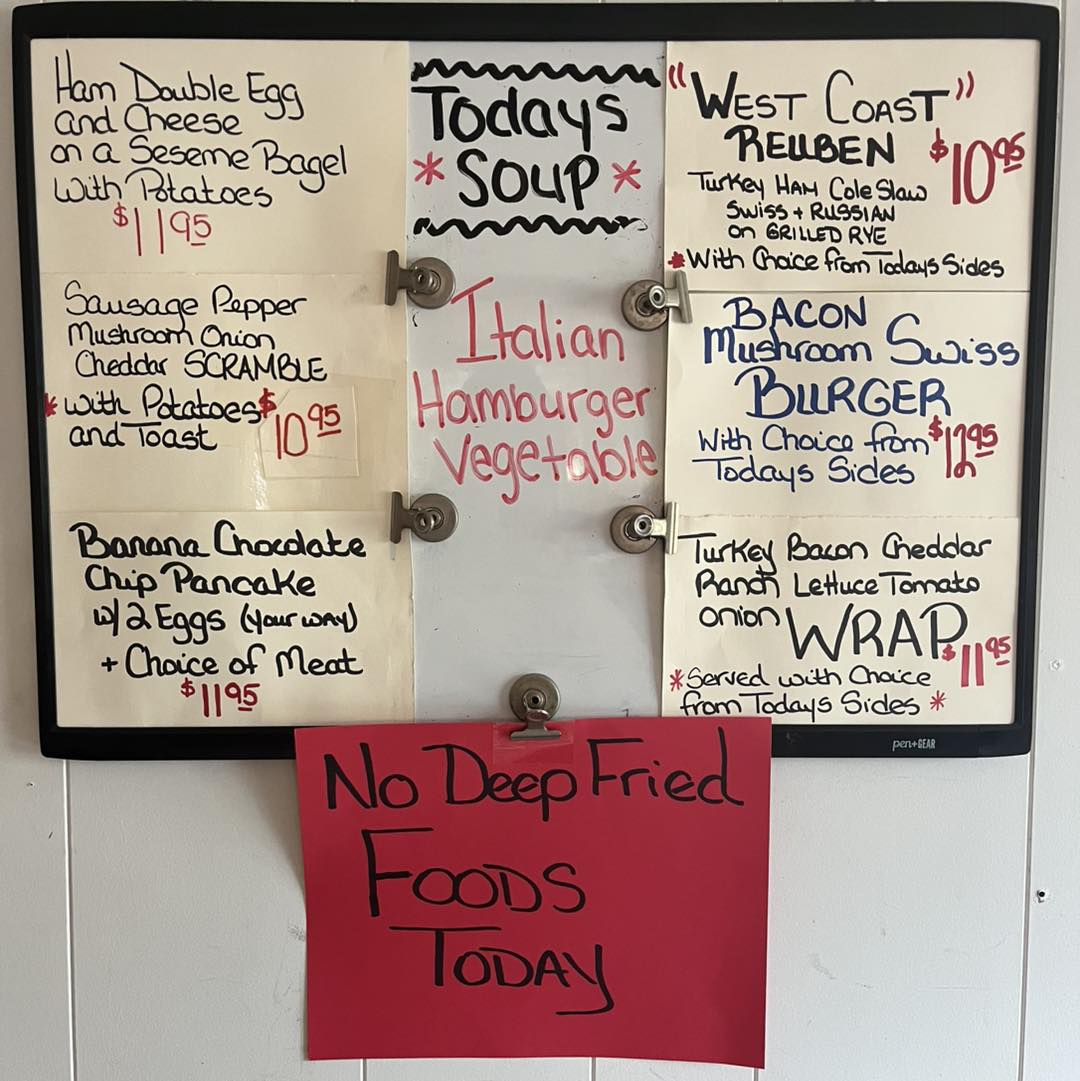 Ham Double Egg
and Cheese
on a Seseme Bagel
with Potatoes
$11.95
Sausage Pepper
Mushroom Onion
Cheddar SCRAMBLE
* with Potatoes
and Toast
$10.95
Banana Chocolate
Chip Pancake
w/2 Eggs (your way)
+ Choice of Meat
$11.95
Todays
* SOUP *
Italian
Hamburger
Vegetable
"WEST COAST"
REUBEN $10.95
Turkey HAM Cole Slaw
Swiss + RUSSIAN
on GRILLED RYE
* With Choice from Todays Sides
BACON
Mushroom Swiss
BURGER
With Choice from $12.95
Todays Sides
Turkey Bacon Cheddar
Ranch Lettuce Tomato
onion WRAP $11.95
* Served with Choice
from Todays Sides *
pen+GEAR
No Deep Fried
Foods
Today